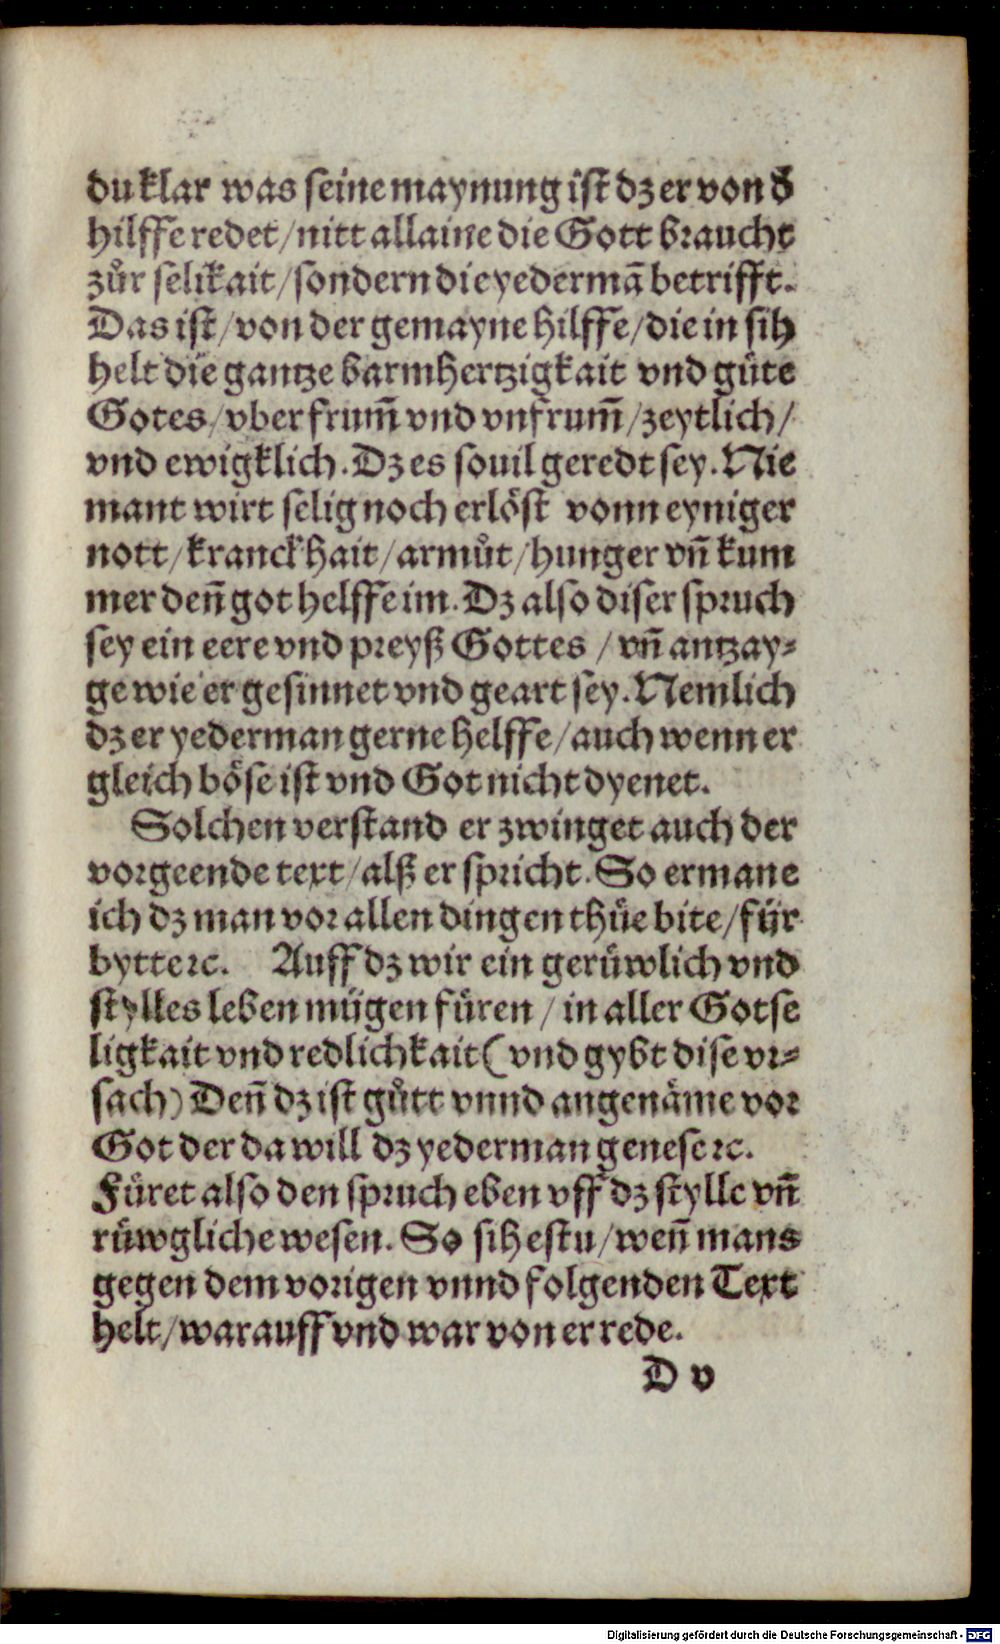 du klar was seine maynung ist dz er von đ
hilffe redet / nitt allaine die Gott braucht
zůr selikait / sondern die yedermā betrifft.
Das ist / von der gemayne hilffe / die in sih
helt die gantze barmhertzigkait vnd gůte
Gotes / vber frum̄ vnd vnfrum̄ / zeytlich /
vnd ewigklich. Dz es souil geredt sey. Nie
mant wirt selig noch erlöst vonn eyniger
nott / kranckhait / armůt / hunger vn̄ kum
mer den̄ got helffe im. Dz also diser spruch
sey ein eere vnd preyß Gottes / vn̄ antzay⸗
ge wie er gesinnet vnd geart sey. Nemlich
dz er yederman gerne helffe / auch wenn er
gleich böse ist vnd Got nicht dyenet.
Solchen verstand er zwinget auch der
vorgeende text / alß er spricht. So ermane
ich dz man vor allen dingen thüe bite / für
bytt ⁊c. Auff dz wir ein gerüwlich vnd
stylles leben mügen füren / in aller Gotse
ligkait vnd redlichkait ( vnd gybt dise vr⸗
sach) Den̄ dz ist gůtt vnnd angenäme vor
Got der da will dz yederman genese ⁊c.
Füret also den spruch eben vff dz stylle vn̄
rüwgliche wesen. So sihestu / wen̄ mans
gegen dem vorigen vnnd folgenden Text
helt / warauff vnd war von er rede.
D v
Digitalisierung gefördert durch die Deutsche Forschungsgemeinschaft - DFG